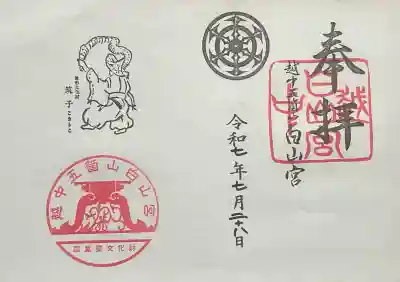 奉拝
越中五箇山白山宮
令和七年七月二十八日
こきりこ
越中五箇山白山宮
国重要文化財